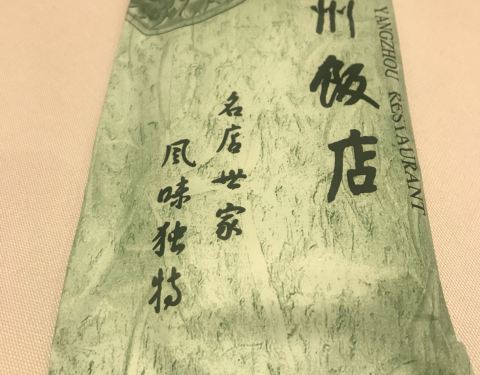 州飯店
YANGZHOU RESTAURANT
名店世家
风味独特